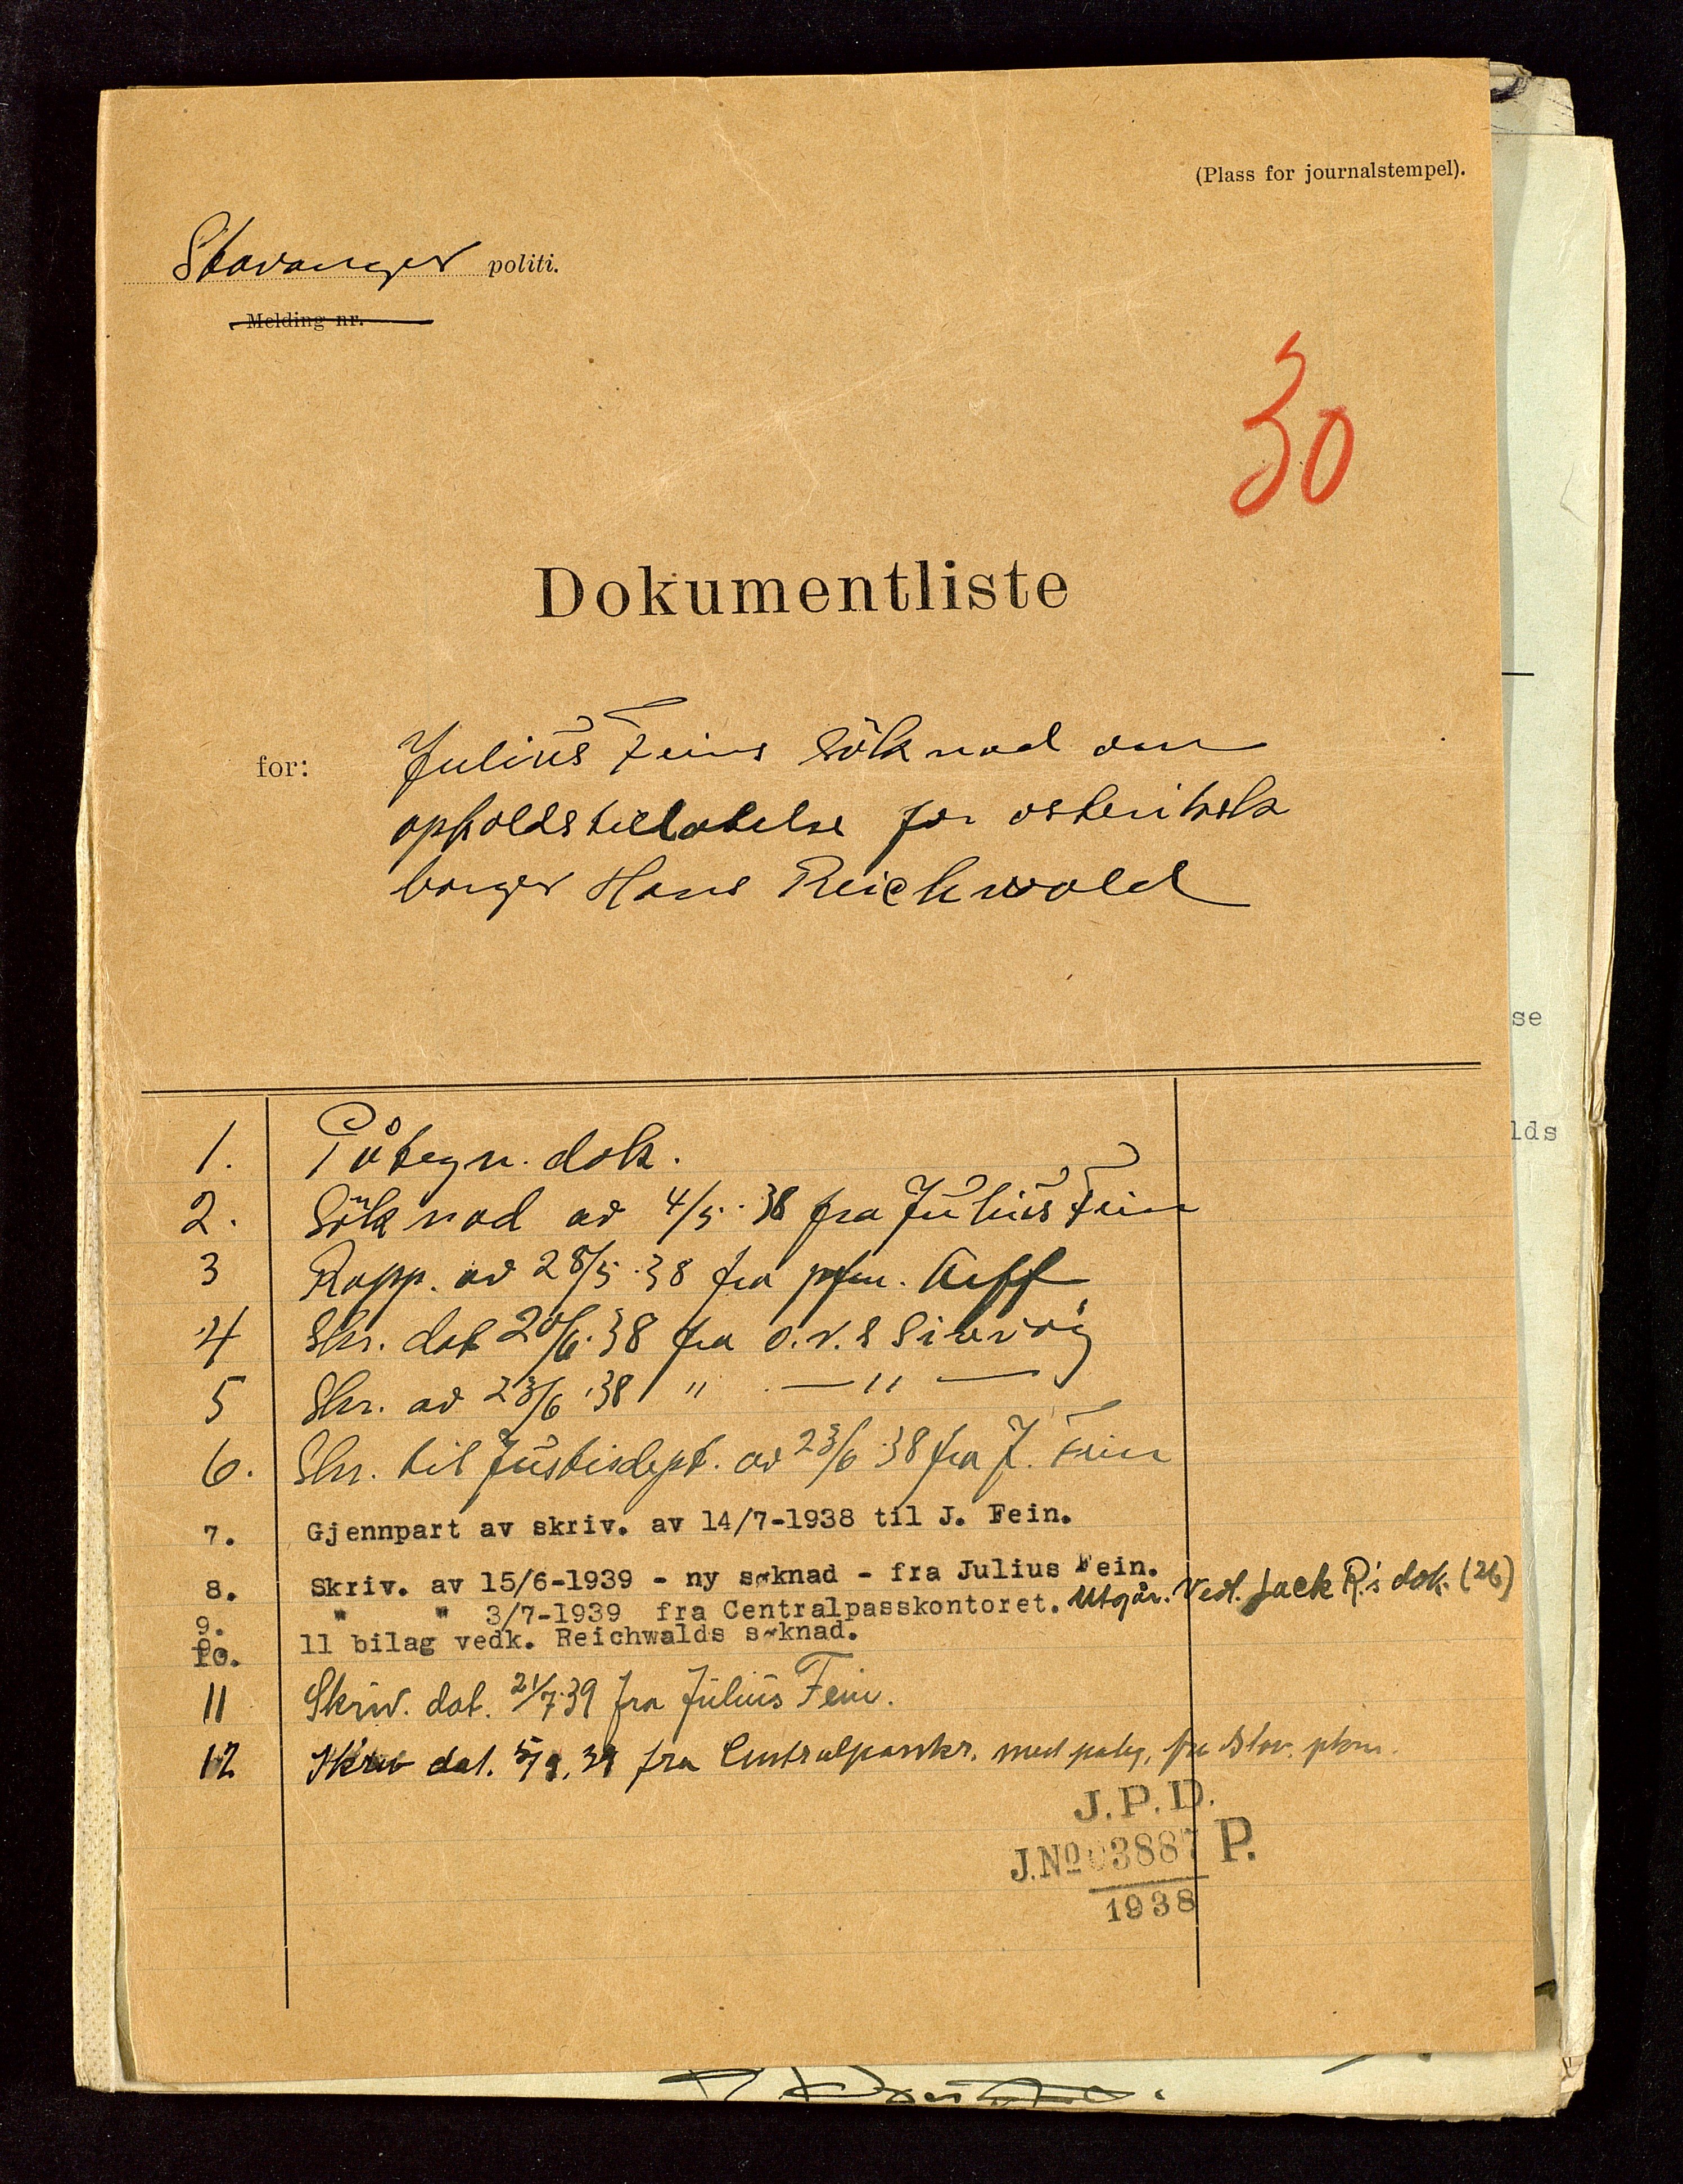 (Plass for journalstempel).
Stavanger politi.
Melding nr.
30
Dokumentliste
for: Julius Feins søknad om
opholdstillatelse for østerriksk
borger Hans Reichwald
se
lds
1. Påtegn. dok.
2. Søknad av 4/5.38 fra Julius Fein
3 Rapp. av 28/5.38 fra pfm. Aiff
4 Skr. dat 20/6.38 fra o.r.s
5 Skr. av 23/6.38 " — " —
6. Skr. til Justisdept. av 23/6.38 fra J. Fein
7. Gjennpart av skriv. av 14/7-1938 til J. Fein.
8. Skriv. av 15/6-1939 - ny søknad - fra Julius Fein.
9. " " 3/7-1939 fra Centralpasskontoret. Utgår. Vedl. Jack R.'s dok. (26)
10. 11 bilag vedk. Reichwalds søknad.
11 Skriv. dat. 21/7.39 fra Julius Fein.
12 Skriv dat. 5/9.39 fra Centralpasskr. med påteg. fra Stav. pkm.
J.P.D.
J.Nº 03887 P.
1938